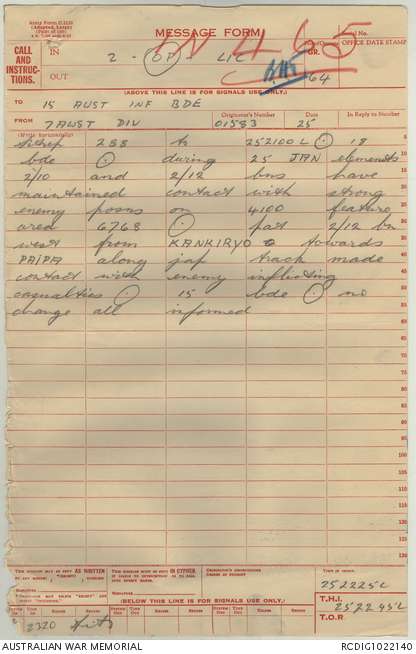 MESSAGE FORM
CALL AND INSTRUCTIONS.
IN 2 - OP - LIC
OUT
GR. 64
OFFICE DATE STAMP
(ABOVE THIS LINE IS FOR SIGNALS USE ONLY.)
TO 15 AUST INF BDE
FROM 7 AUST DIV
Originator's Number 01583
Date 25
In Reply to Number
sitrep 288 to 252100L . 18
bde . during 25 JAN elements
2/10 and 2/12 bns have
maintained contact with strong
enemy posns on 4100 feature
area 6763 . pat 2/12 bn
west from KANKIRYO towards
PAIPA along jap track made
contact with enemy inflicting
casualties . 15 bde . no
change all informed
(BELOW THIS LINE IS FOR SIGNALS USE ONLY.)
252225L
T.H.I. 252245L
T.O.R.
2320
AUSTRALIAN WAR MEMORIAL
RCDIG1022140